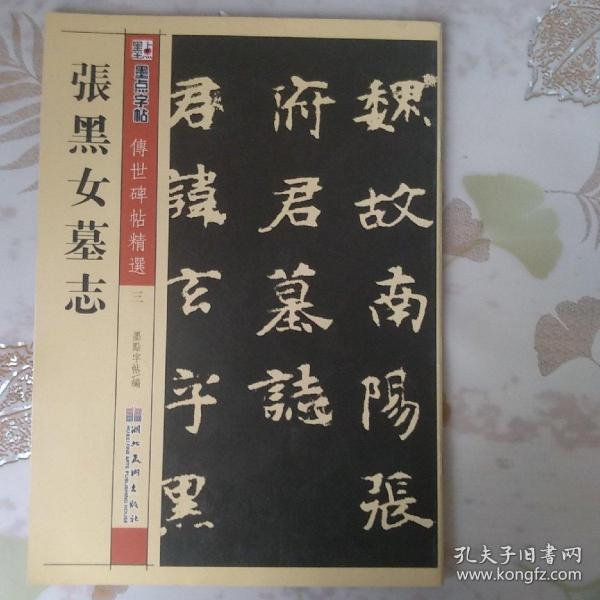 張黑女墓志
墨点
墨点字帖
傳世碑帖精選
三
墨點字帖 編
湖北美術出版社
HUBEI FINE ARTS PUBLISHING HOUSE
魏故南陽張
府君墓誌
君諱玄字黑
孔夫子旧书网
www.kongfz.com